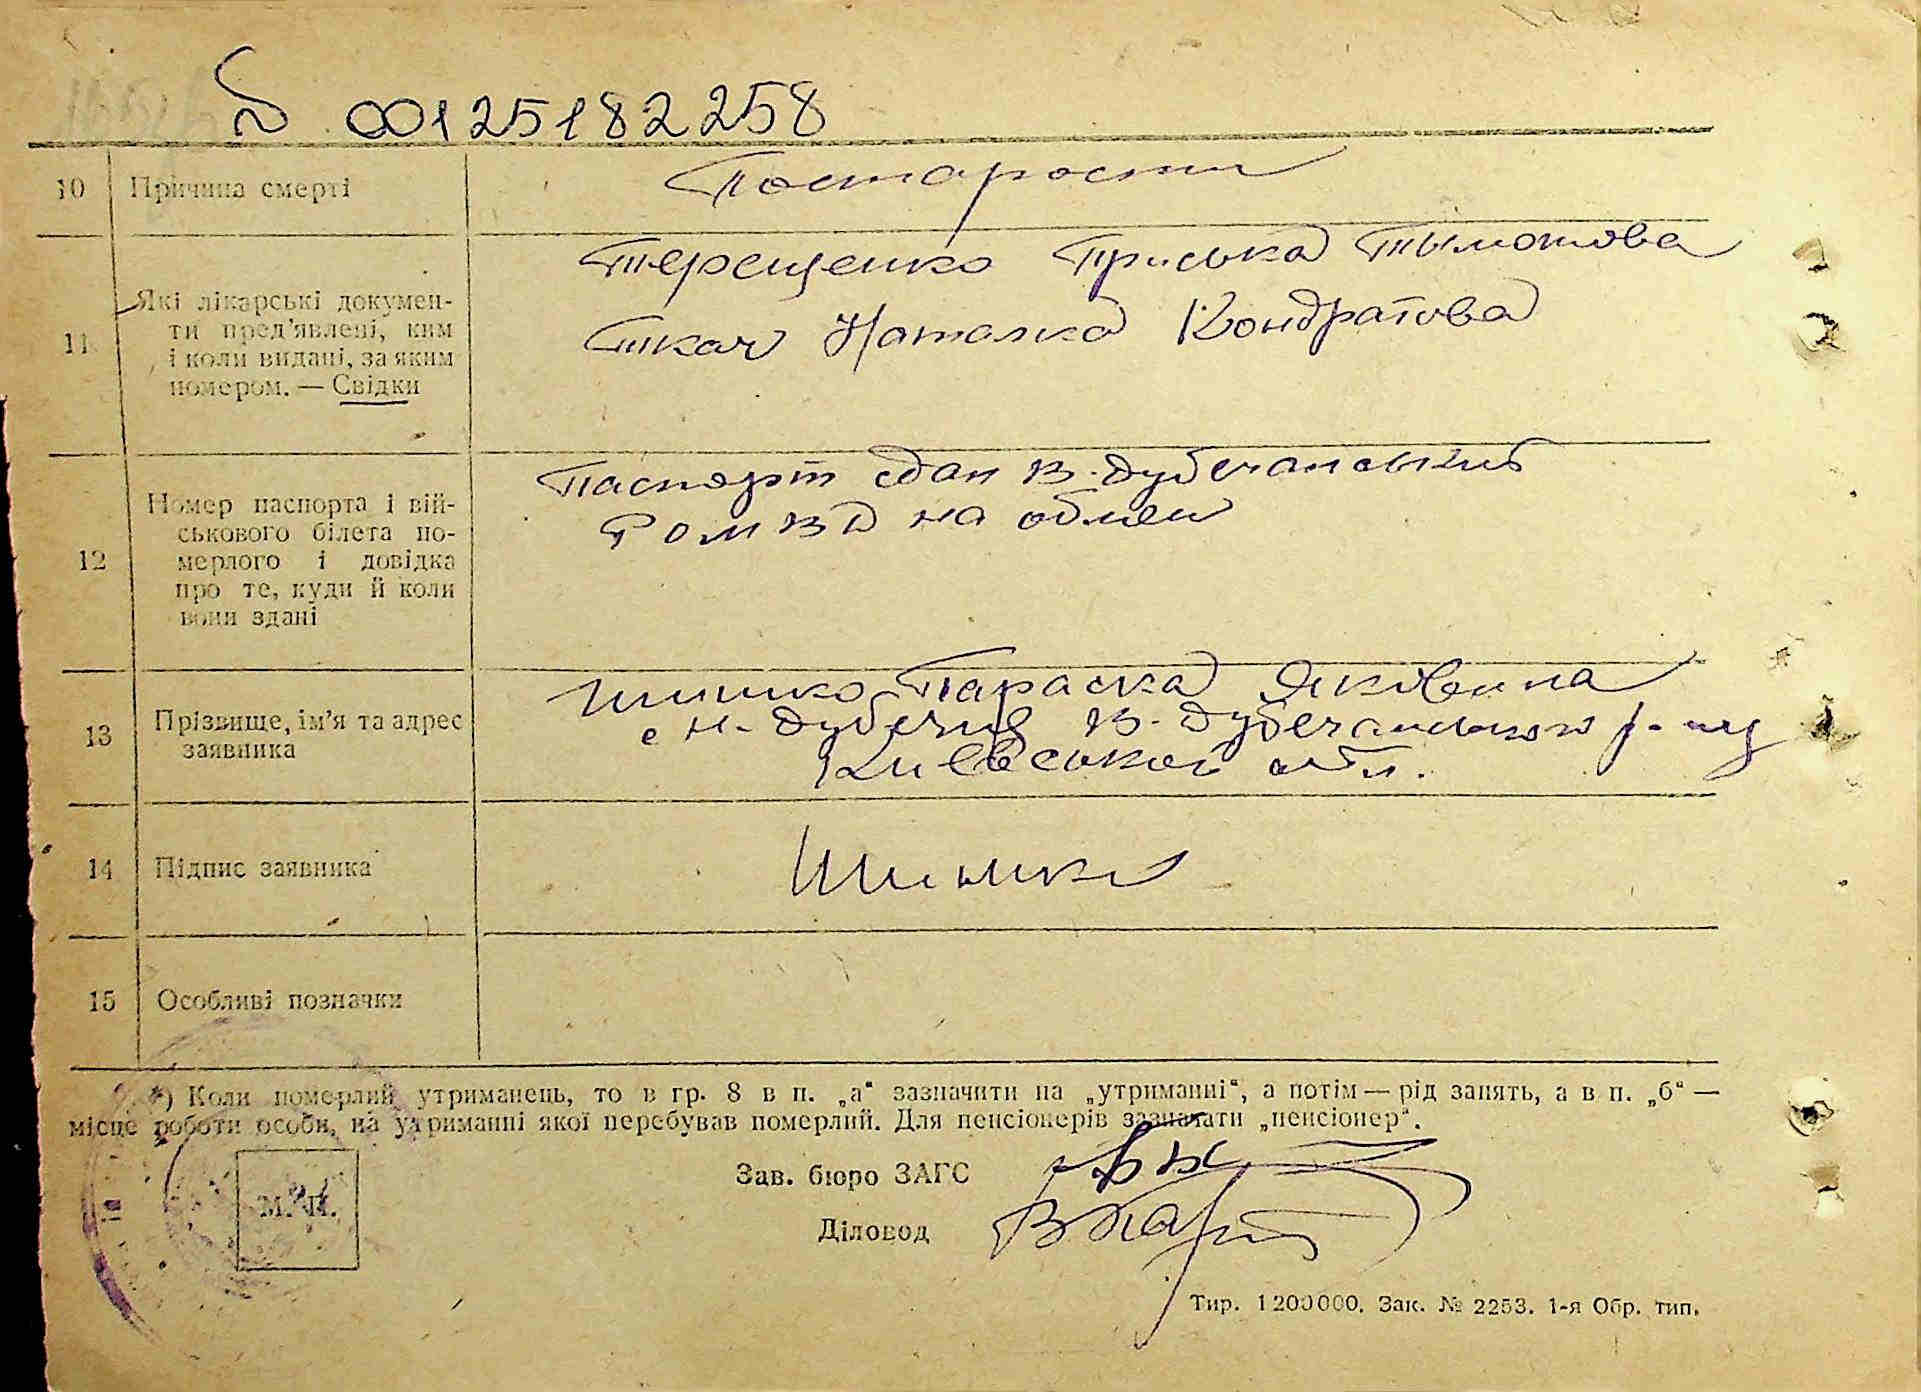 00125182258
10 Причина смерті
По старости
11 Які лікарські докумен-
ти пред'явлені, ким
і коли видані, за яким
номером. — Свідки
Терещенко Приська Тымотова
Ткач Наталка Кондратова
12 Номер паспорта і вій-
ськового білета по-
мерлого і довідка
про те, куди й коли
вони здані
Паспорт сдан В-Дубечанський
РОМВД на обмен
13 Прізвище, ім'я та адрес
заявника
Шишко Параска Яківина
с Н-Дубечня В-Дубечанського р-ну
Київської обл.
14 Підпис заявника
Шишко
15 Особливі позначки
*) Коли померлий утриманець, то в гр. 8 в п. „а“ зазначити на „утриманні“, а потім — рід занять, а в п. „б“ —
місце роботи особи, на утриманні якої перебував померлий. Для пенсіонерів зазначати „пенсіонер“.
Зав. бюро ЗАГС
М. П.
Діловод
Тир. 1200000. Зак. № 2253. 1-я Обр. тип.